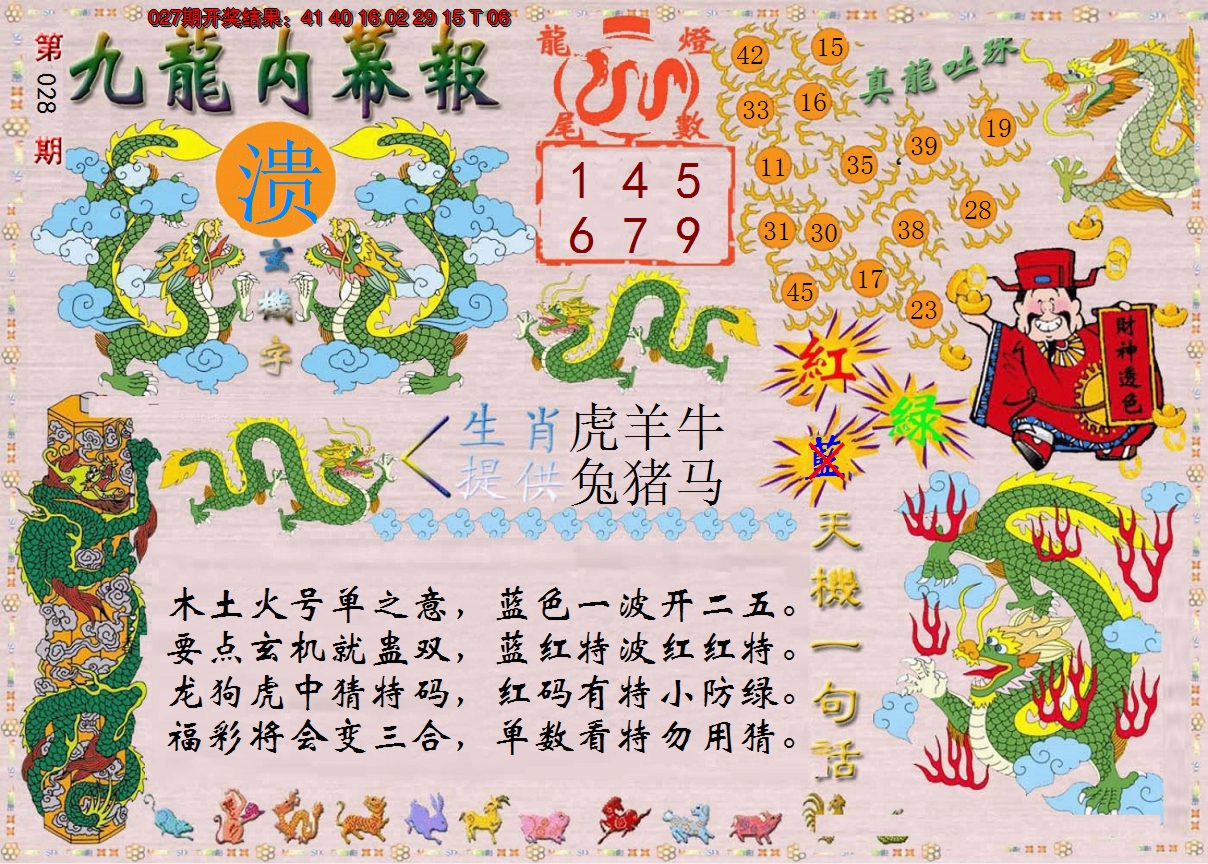 027期开奖结果：41 40 16 02 29 15 T 06
第028期
九龍内幕報
溃
玄機字
龍燈
尾數
1 4 5
6 7 9
真龍吐珠
42 15
33 16
11 35 39 19
31 30 38 28
45 17 23
財神透色
紅
绿
蓝
生肖提供
虎羊牛
兔猪马
天機一句話
木土火号单之意，蓝色一波开二五。
要点玄机就蛊双，蓝红特波红红特。
龙狗虎中猜特码，红码有特小防绿。
福彩将会变三合，单数看特勿用猜。